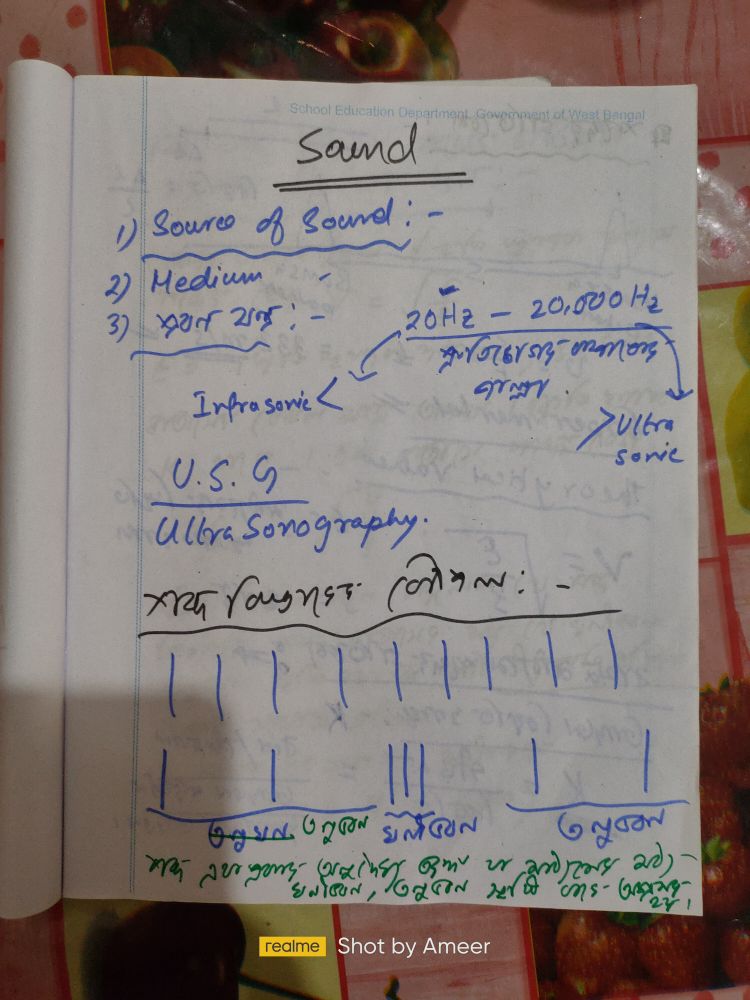 School Education Department, Government of West Bengal
Sound
1) Source of Sound: -
2) Medium -
3) শ্রবন যন্ত্র: -
20Hz - 20,000 Hz
পাল্লা
Infrasonic <
> Ultra
sonic
U.S.G
Ultra Sonography.
শব্দ বিস্তারের কৌশল: -
তনুঘন তনুভবন ঘনীভবন তনুভবন
শব্দ একপ্রকার অনুদৈর্ঘ্য তরঙ্গ যা মাধ্যমের মধ্যে
ঘনীভবন, তনুভবন সৃষ্টি করে অগ্রসর
হয়।
realme Shot by Ameer